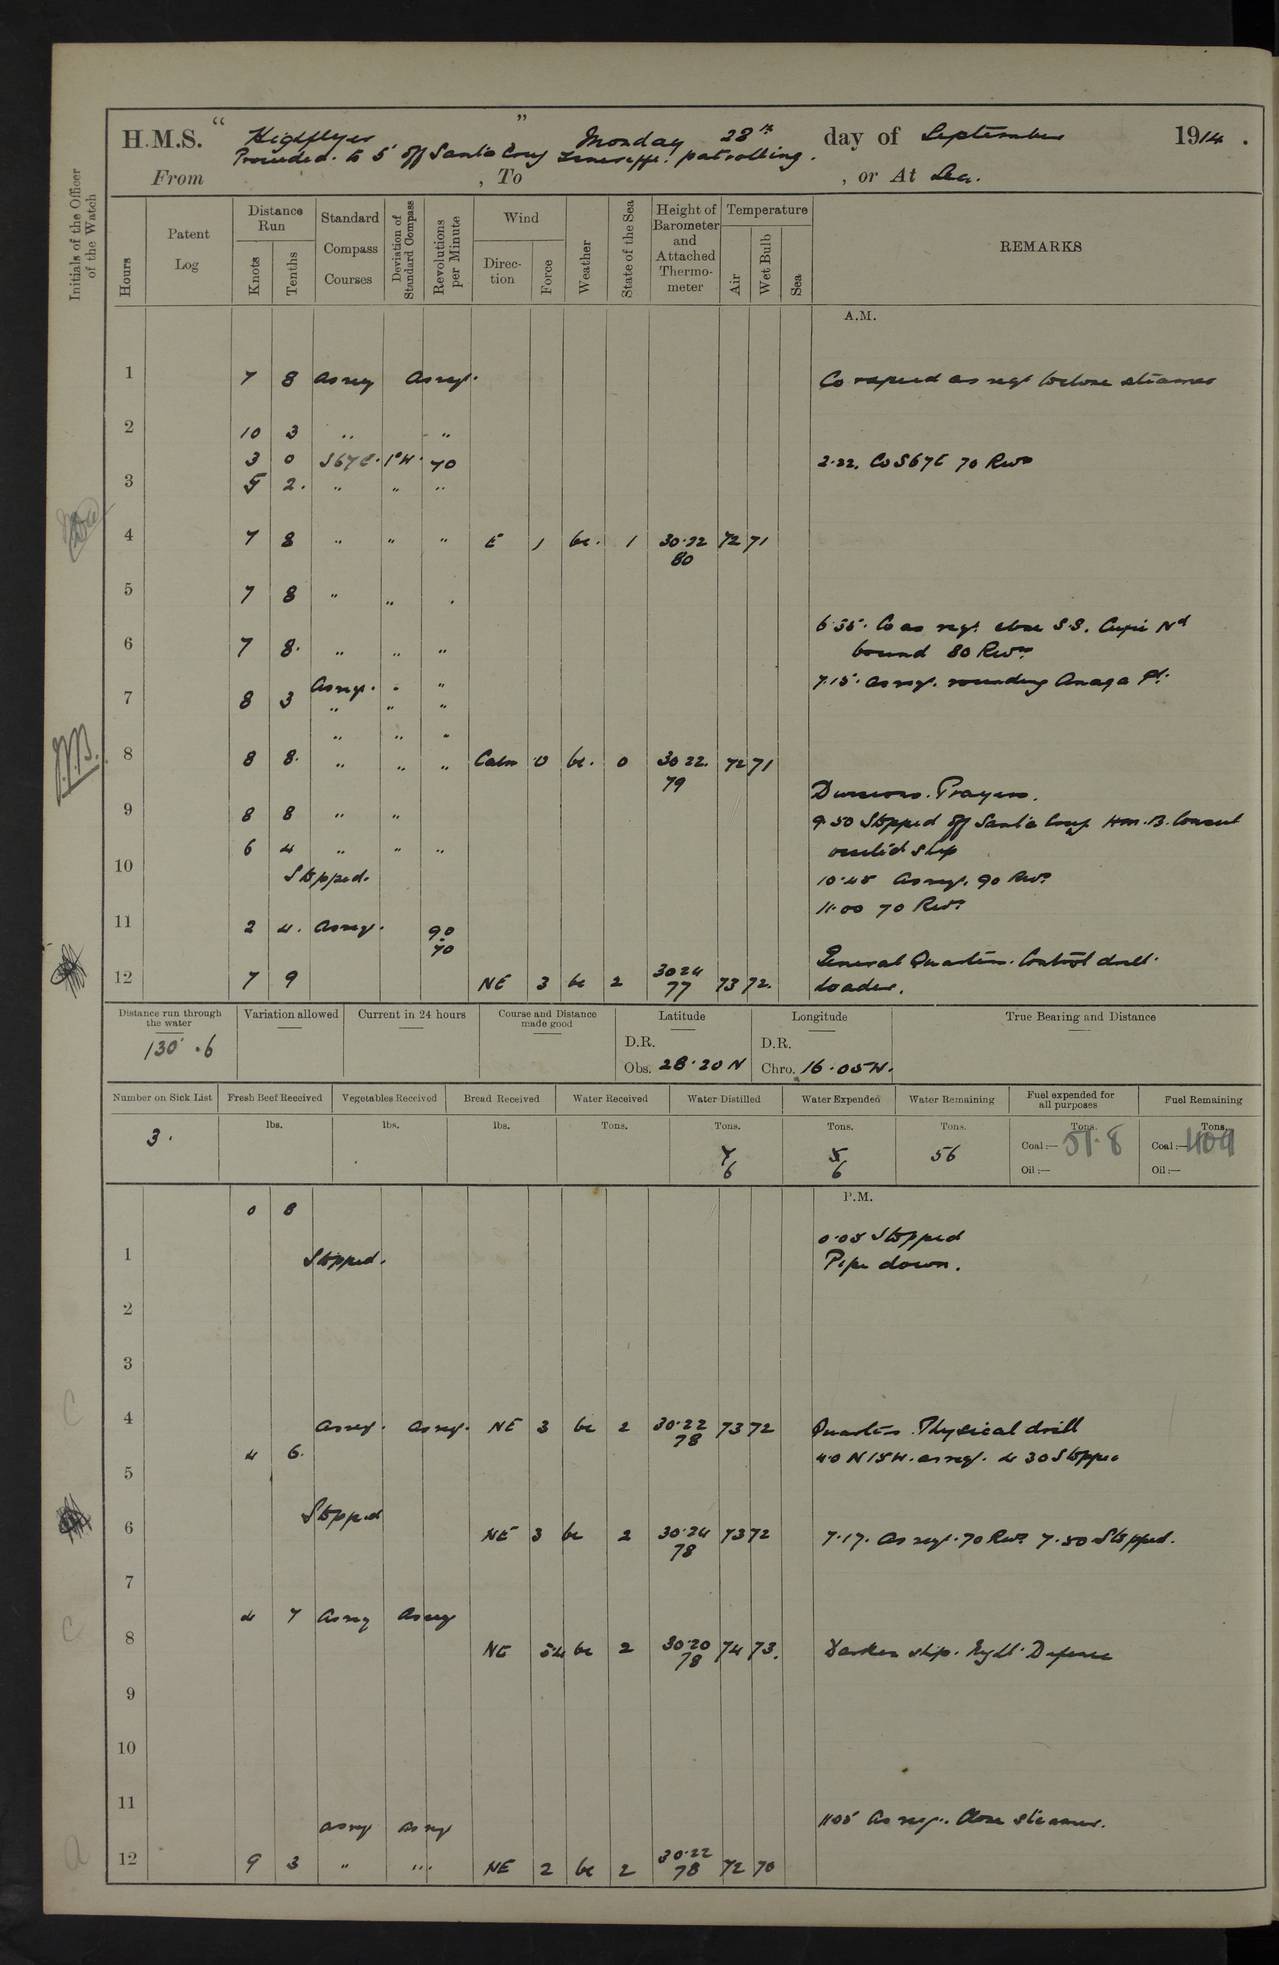 H.M.S. " Highflyer " Monday 28th day of September 1914.
Proceeded to 5' off Santa Cruz Teneriffe. patrolling.
From , To , or At Sea.
Initials of the Officer of the Watch
Hours Patent Log Distance Run Knots Tenths Standard Compass Courses Deviation of Standard Compass Revolutions per Minute Wind Direction Force Weather State of the Sea Height of Barometer and Attached Thermometer Temperature Air Wet Bulb Sea REMARKS
A.M.
1 7 8 As req As req. Co & speed as reqd to close steamer
2 10 3 " "
3 0 S67E. 1°W. 70 2.22. Co S67E 70 Revs
3 5 2. " " "
4 7 8 " " " E 1 bc. 1 30.22 80 72 71
5 7 8 " " "
6.55. Co as reqd close S.S. Nd
6 7 8. " " " bound 80 Revs
As req. " " 7.15. as req. rounding Anaga Pt.
7 8 3 " " "
" " "
8 8 8. " " " Calm 0 bc. 0 30.22. 79 72 71
Divisions. Prayers.
9 8 8 " " 9.50 Stopped off Santa Cruz H.M. B. Consul
6 4 " " " visited ship
10 Stopped. 10.45 As req. 90 Revs
11.00 70 Revs
11 2 4. As req. 90
70
General Quarters. Control drill.
12 7 9 NE 3 bc 2 30.24 77 73 72. Loader.
Distance run through the water Variation allowed Current in 24 hours Course and Distance made good Latitude Longitude True Bearing and Distance
130.6 D.R. D.R.
Obs. 28.20 N Chro. 16.05 W.
Number on Sick List Fresh Beef Received Vegetables Received Bread Received Water Received Water Distilled Water Expended Water Remaining Fuel expended for all purposes Fuel Remaining
lbs. lbs. lbs. Tons. Tons. Tons. Tons. Tons. Tons.
3. 7 6 5 6 56 Coal:— 51.8 Coal:— 404
Oil:— Oil:—
P.M.
0 8
0.05 Stopped
1 Stopped. Pipe down.
2
3
4 As req. As req. NE 3 bc 2 30.22 78 73 72 Quarters. Physical drill
4 6. 4.0 N15W. as req. 4.30 Stopped
5
Stopped
6 NE 3 bc 2 30.24 78 73 72 7.17. As req. 70 Revs 7.50 Stopped.
7
4 7 As req As req
8 NE 54 bc 2 30.20 78 74 73. Darken ship. Night Defence
9
10
11 11.05 As req. Close steamer.
As req As req
12 9 3 " " NE 2 bc 2 30.22 78 72 70